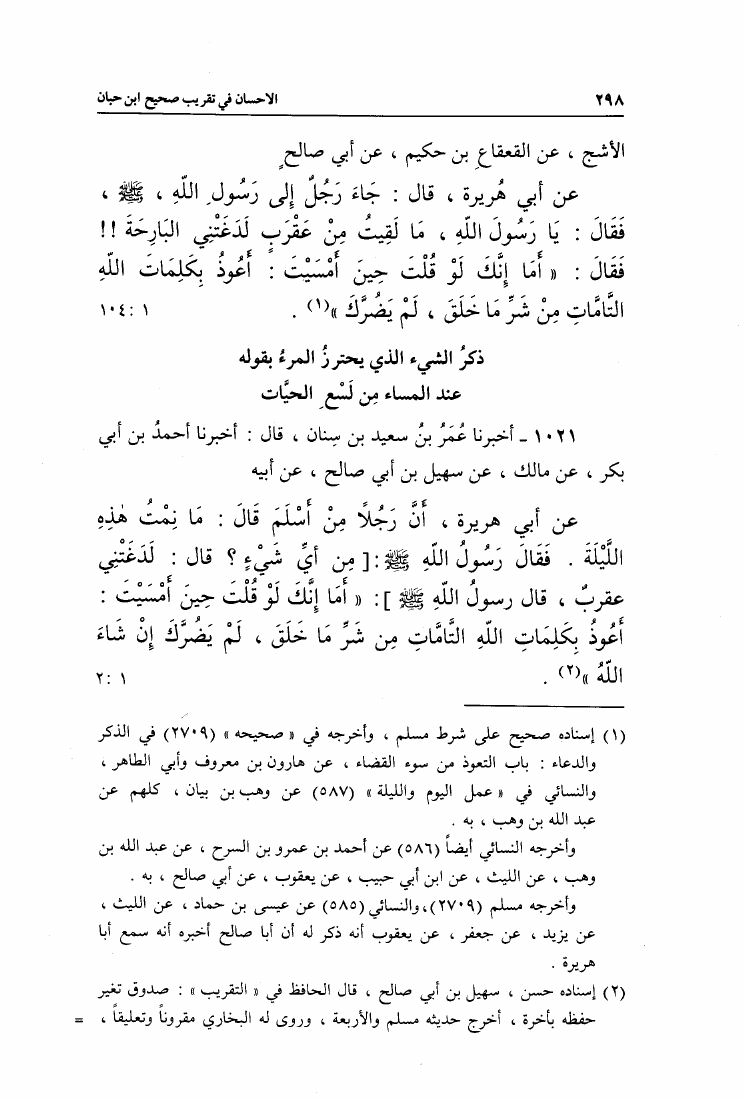 ٢٩٨
الاحسان في تقريب صحيح ابن حبان
الأشج ، عن القعقاعِ بن حكيم ، عن أبي صالحٍ
عن أبي هُريرة ، قال : جَاءَ رَجُلٌ إلى رَسُولِ اللّهِ ، ﷺ ،
فَقَالَ : يَا رَسُولَ اللّهِ ، مَا لَقِيتُ مِنْ عَقْرَبٍ لَدَغَتْنِي البَارِحَةَ !!
فَقَالَ : « أَمَا إِنَّكَ لَوْ قُلْتَ حِينَ أَمْسَيْتَ : أَعُوذُ بِكَلِمَاتِ اللّهِ
التَّامَّاتِ مِنْ شَرِّ مَا خَلَقَ ، لَمْ يَضُرَّكَ »(١) . ١ :١٠٤
ذكرُ الشيء الذي يحترزُ المرءُ بقوله
عند المساء مِن لَسْعِ الحيَّات
١٠٢١ - أخبرنا عُمَرُ بنُ سعيد بن سِنان ، قال : أخبرنا أحمدُ بن أبي
بكر ، عن مالك ، عن سهيل بن أبي صالح ، عن أبيه
عن أبي هريرة ، أَنَّ رَجُلاً مِنْ أَسْلَمَ قَالَ : مَا نِمْتُ هٰذِهِ
اللَّيْلَةَ . فَقَالَ رَسُولُ اللّهِ ﷺ :[ مِن أيِّ شَيْءٍ ؟ قال : لَدَغَتْنِي
عقربٌ ، قال رسولُ اللّهِ ﷺ ]: « أَمَا إِنَّكَ لَوْ قُلْتَ حِينَ أَمْسَيْتَ :
أَعُوذُ بِكَلِمَاتِ اللّهِ التَّامَّاتِ مِن شَرِّ مَا خَلَقَ ، لَمْ يَضُرَّكَ إِنْ شَاءَ
اللّهُ »(٢) . ١ :٢
(١) إسناده صحيح على شرط مسلم ، وأخرجه في « صحيحه » (٢٧٠٩) في الذكر
والدعاء : باب التعوذ من سوء القضاء ، عن هارون بن معروف وأبي الطاهر ،
والنسائي في « عمل اليوم والليلة » (٥٨٧) عن وهب بن بيان ، كلهم عن
عبد الله بن وهب ، به .
وأخرجه النسائي أيضاً (٥٨٦) عن أحمد بن عمرو بن السرح ، عن عبد الله بن
وهب ، عن الليث ، عن ابن أبي حبيب ، عن يعقوب ، عن أبي صالح ، به .
وأخرجه مسلم (٢٧٠٩)،والنسائي(٥٨٥) عن عيسى بن حماد ، عن الليث ،
عن يزيد ، عن جعفر ، عن يعقوب أنه ذكر له أن أبا صالح أخبره أنه سمع أبا
هريرة .
(٢) إسناده حسن ، سهيل بن أبي صالح ، قال الحافظ في « التقريب » : صدوق تغير
حفظه بأخرة ، أخرج حديثه مسلم والأربعة ، وروى له البخاري مقروناً وتعليقاً ، =